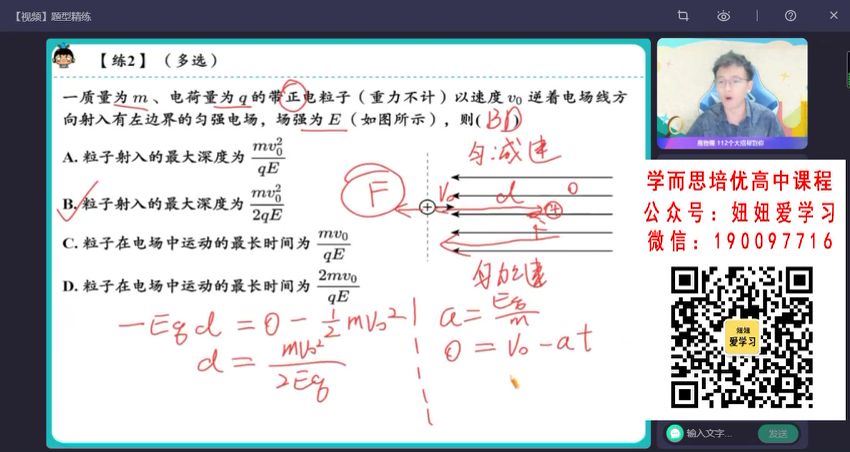 【视频】题型精练
【练2】（多选）
一质量为 m、电荷量为 q 的带正电粒子（重力不计）以速度 v₀ 逆着电场线方
向射入有左边界的匀强电场，场强为 E（如图所示），则( BD )
A. 粒子射入的最大深度为 mv₀²/qE
B. 粒子射入的最大深度为 mv₀²/2qE
C. 粒子在电场中运动的最长时间为 mv₀/qE
D. 粒子在电场中运动的最长时间为 2mv₀/qE
匀减速
F
V₀
d
0
F
匀加速
-Eqd = 0 - 1/2 mv₀²
d = mv₀²/2Eq
a = Eq/m
0 = v₀ - at
学而思培优高中课程
公众号：妞妞爱学习
微信：190097716
妞妞
爱学习
输入文字...
发送